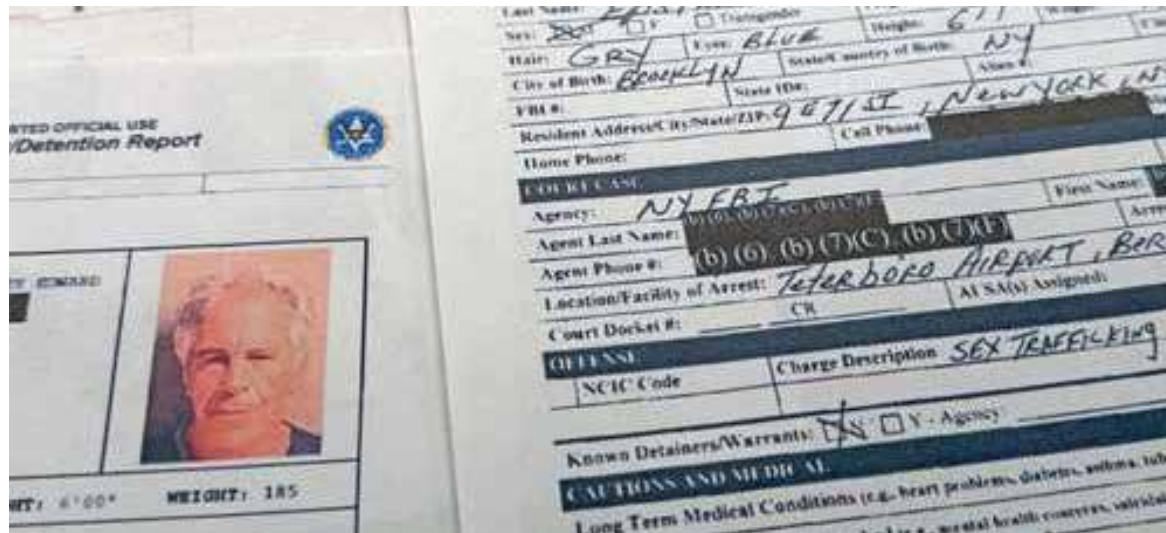 LIMITED OFFICIAL USE
/Detention Report
EDWARD
HT: 6'00" WEIGHT: 185
Last Name:
Sex: F Transgender Height: 6 Weight:
Hair: GRY Eyes: BLUE State/Country of Birth: NY
City of Birth: BROOKLYN Alien #:
FBI #: State ID#:
Resident Address/City/State/ZIP: 9 E 71 ST, NEW YORK, N
Home Phone: Cell Phone:
COURT CASE
Agency: NY FBI
Agent Last Name: First Name:
Agent Phone #: (b) (6), (b) (7)(C), (b) (7)(F)
Location/Facility of Arrest: TETERBORO AIRPORT, BER
Court Docket #: CR AUSA(s) Assigned:
OFFENSE
NCIC Code Charge Description SEX TRAFFICKING
Known Detainers/Warrants: N Y - Agency:
CAUTIONS AND MEDICAL
Long Term Medical Conditions (e.g., heart problems, diabetes, asthma, tub
mental health concerns, suicidal